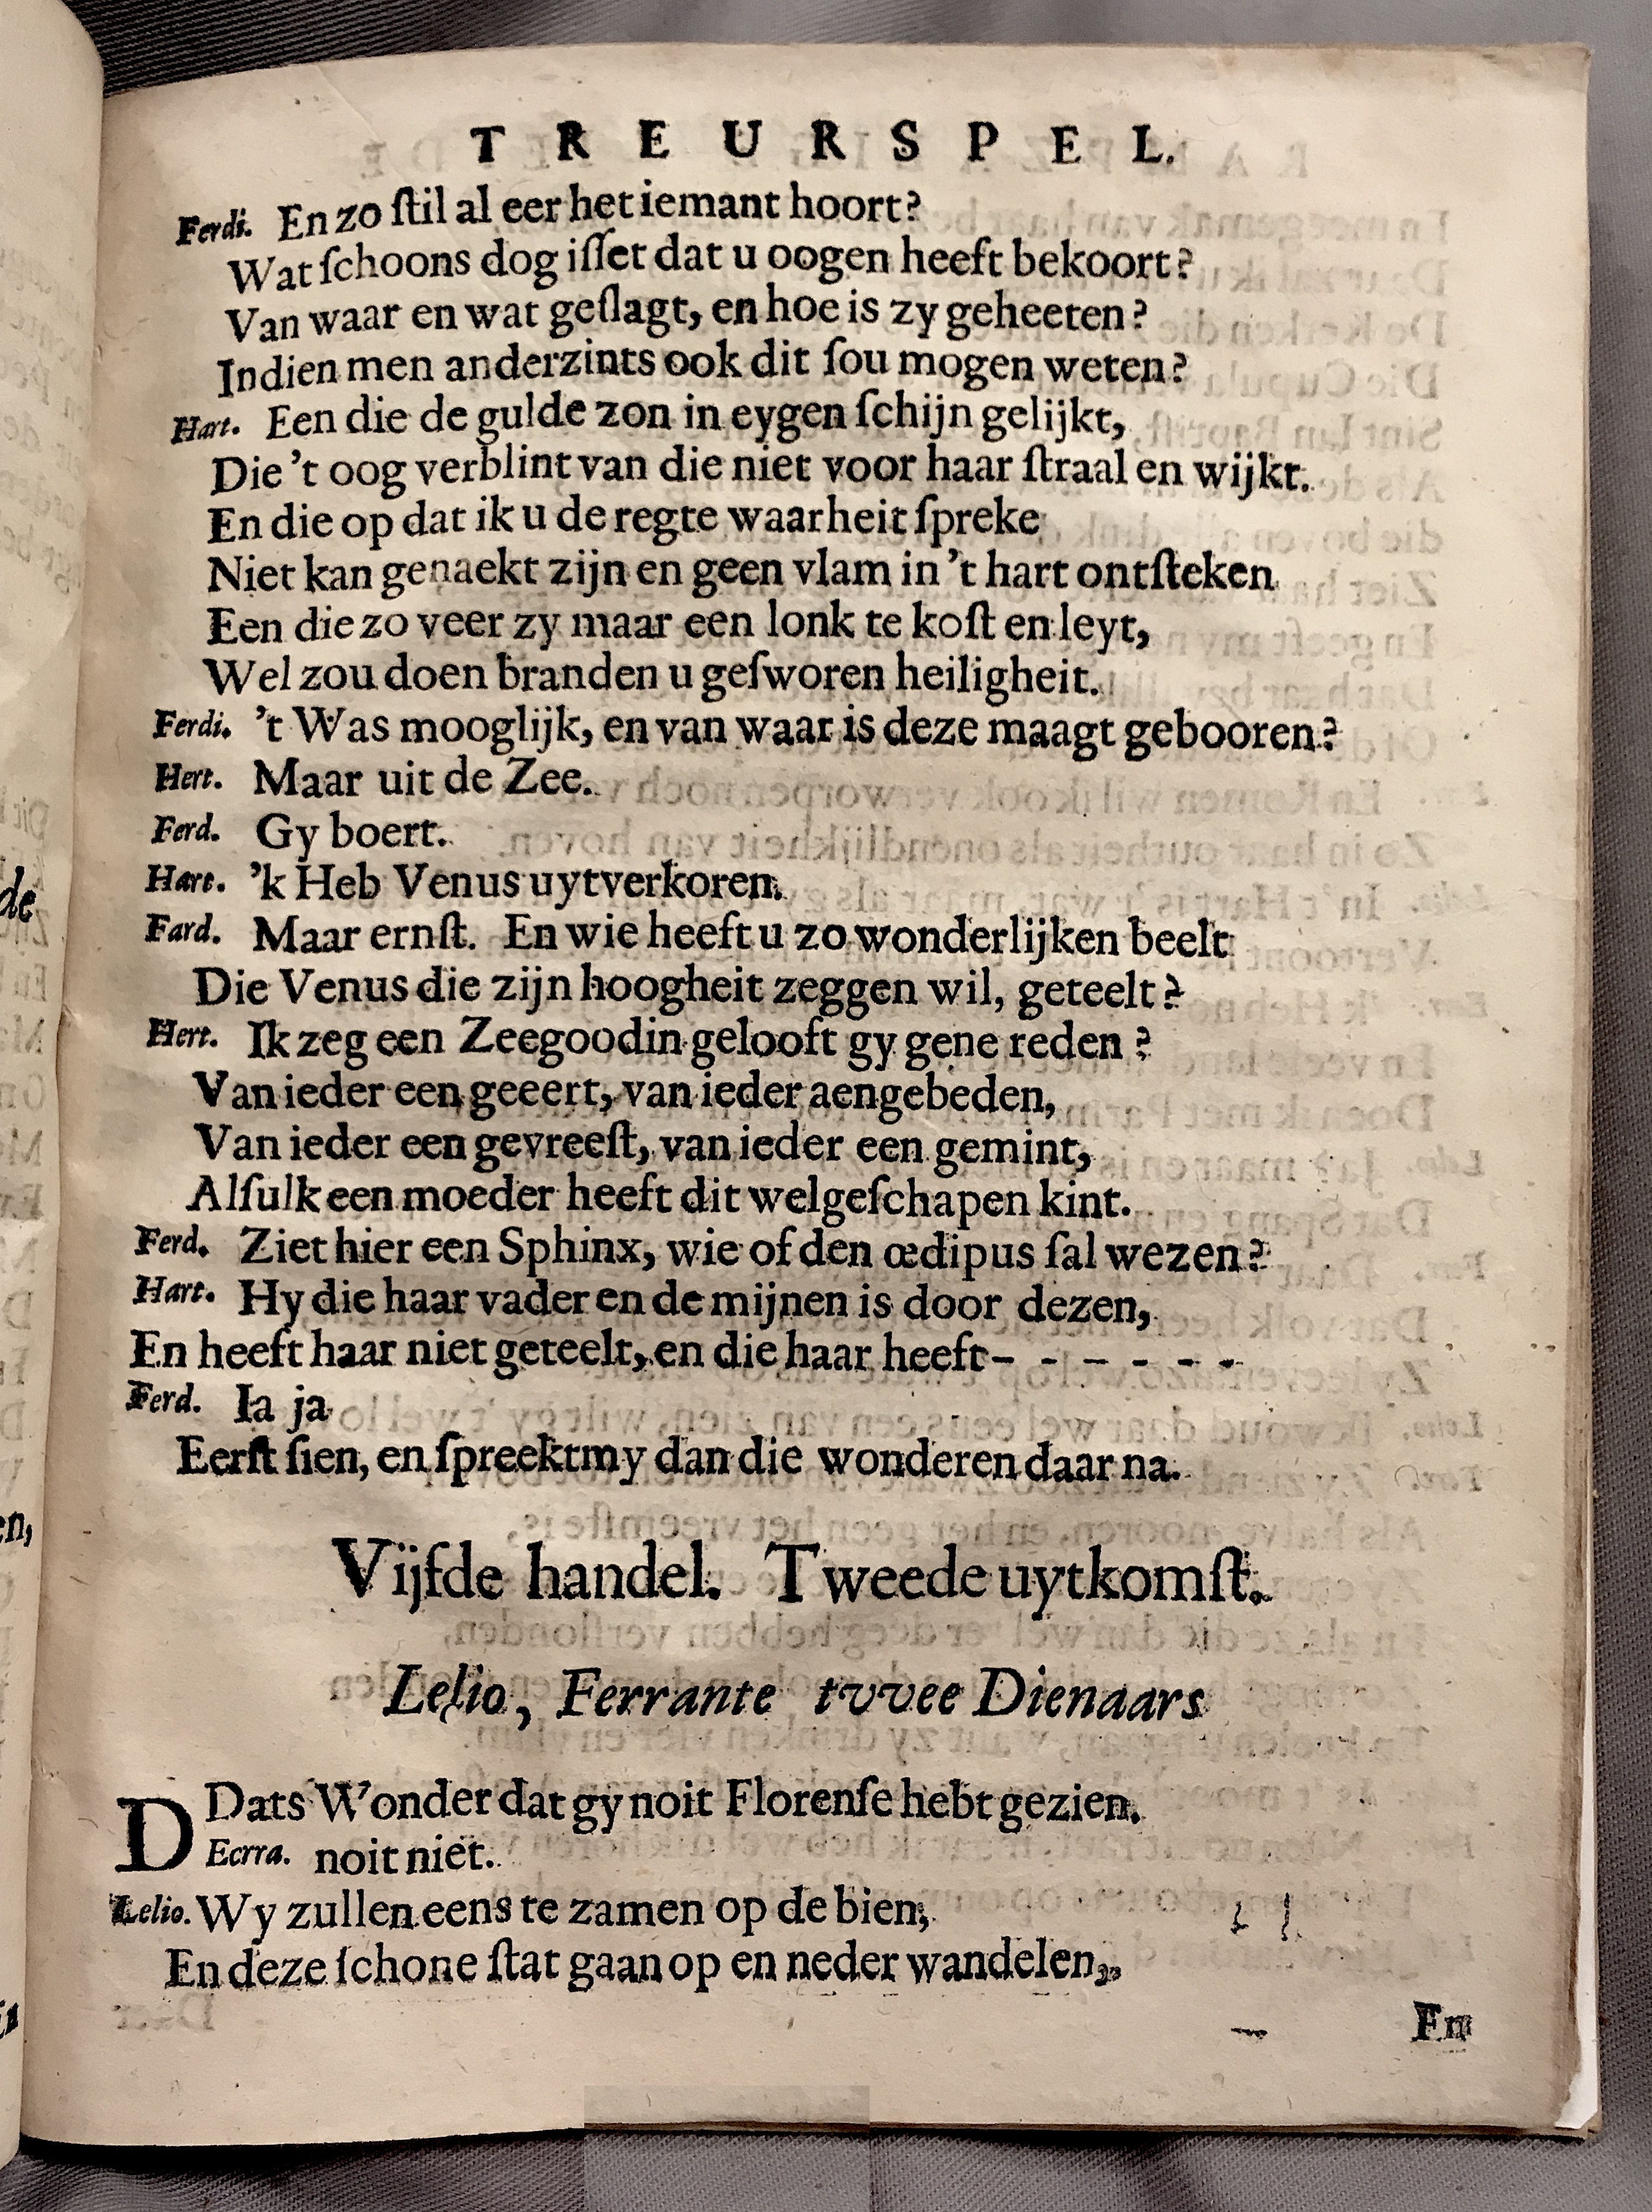 TREURSPEL.
Ferdi. En zo ſtil al eer het iemant hoort?
Wat ſchoons dog iſſet dat u oogen heeft bekoort?
Van waar en wat geſlagt, en hoe is zy geheeten?
Indien men anderzints ook dit ſou mogen weten?
Hart. Een die de gulde zon in eygen ſchijn gelijkt,
Die 't oog verblint van die niet voor haar ſtraal en wijkt.
En die op dat ik u de regte waarheit ſpreke
Niet kan genaekt zijn en geen vlam in 't hart ontſteken
Een die zo veer zy maar een lonk te koſt en leyt,
Wel zou doen branden u geſworen heiligheit.
Ferdi. 't Was mooglijk, en van waar is deze maagt gebooren?
Hert. Maar uit de Zee.
Ferd. Gy boert.
Hart. 'k Heb Venus uytverkoren.
Fard. Maar ernſt. En wie heeft u zo wonderlijken beelt
Die Venus die zijn hoogheit zeggen wil, geteelt?
Hert. Ik zeg een Zeegoodin gelooft gy gene reden?
Van ieder een geeert, van ieder aengebeden,
Van ieder een gevreeſt, van ieder een gemint,
Alſulk een moeder heeft dit welgeſchapen kint.
Ferd. Ziet hier een Sphinx, wie of den œdipus ſal wezen?
Hart. Hy die haar vader en de mijnen is door dezen,
En heeft haar niet geteelt, en die haar heeft- - - - - -
Ferd. Ia ja
Eerſt ſien, en ſpreekt my dan die wonderen daar na.
Vijfde handel. Tweede uytkomſt.
Lelio, Ferrante tvvee Dienaars
DDats Wonder dat gy noit Florenſe hebt gezien.
Ecrra. noit niet.
Lelio. Wy zullen eens te zamen op de bien,
En deze ſchone ſtat gaan op en neder wandelen,
En